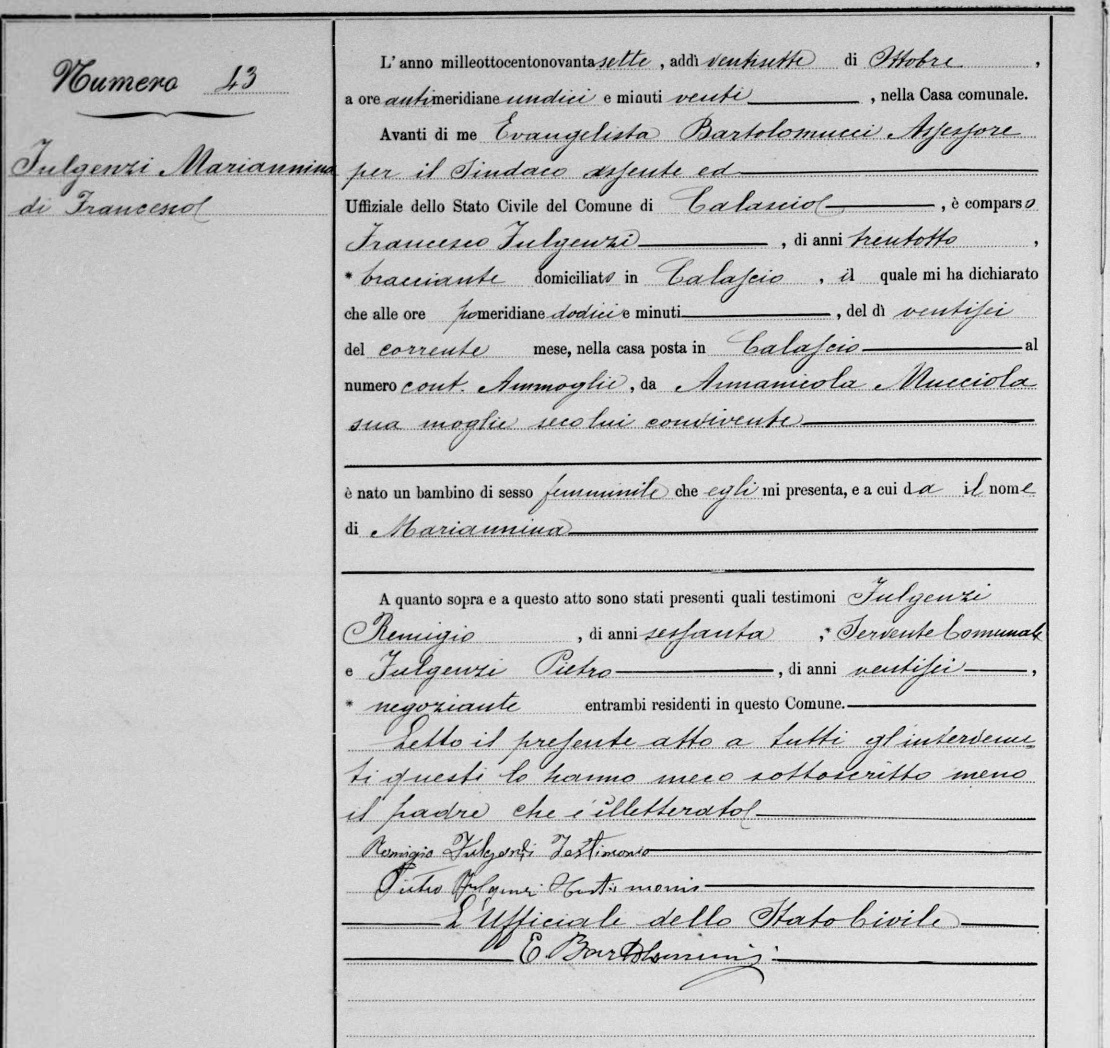 Numero 43
Fulgenzi Mariannina
di Francesco
L' anno milleottocentonovantasette, addì ventisette di Ottobre,
a ore antimeridiane undici e minuti venti, nella Casa comunale.
Avanti di me Evangelista Bartolomucci Assessore
per il Sindaco assente ed
Uffiziale dello Stato Civile del Comune di Calascio, è comparso
Francesco Fulgenzi, di anni trentotto,
* bracciante domiciliato in Calascio, il quale mi ha dichiarato
che alle ore pomeridiane dodici e minuti, del dì ventisei
del corrente mese, nella casa posta in Calascio al
numero cont. Ammoglie, da Annanicola Mucciola
sua moglie seco lui convivente
è nato un bambino di sesso femminile che egli mi presenta, e a cui da il nome
di Mariannina
A quanto sopra e a questo atto sono stati presenti quali testimoni Fulgenzi
Remigio, di anni sessanta, * Servente Comunale
e Fulgenzi Pietro, di anni ventisei,
* negoziante entrambi residenti in questo Comune.
Letto il presente atto a tutti gl'intervenu-
ti questi lo hanno meco sottoscritto meno
il padre che è illetterato
Remigio Fulgenzi Testimonio
Pietro Fulgenzi Testimonio
L'Ufficiale dello Stato Civile
E. Bartolomucci